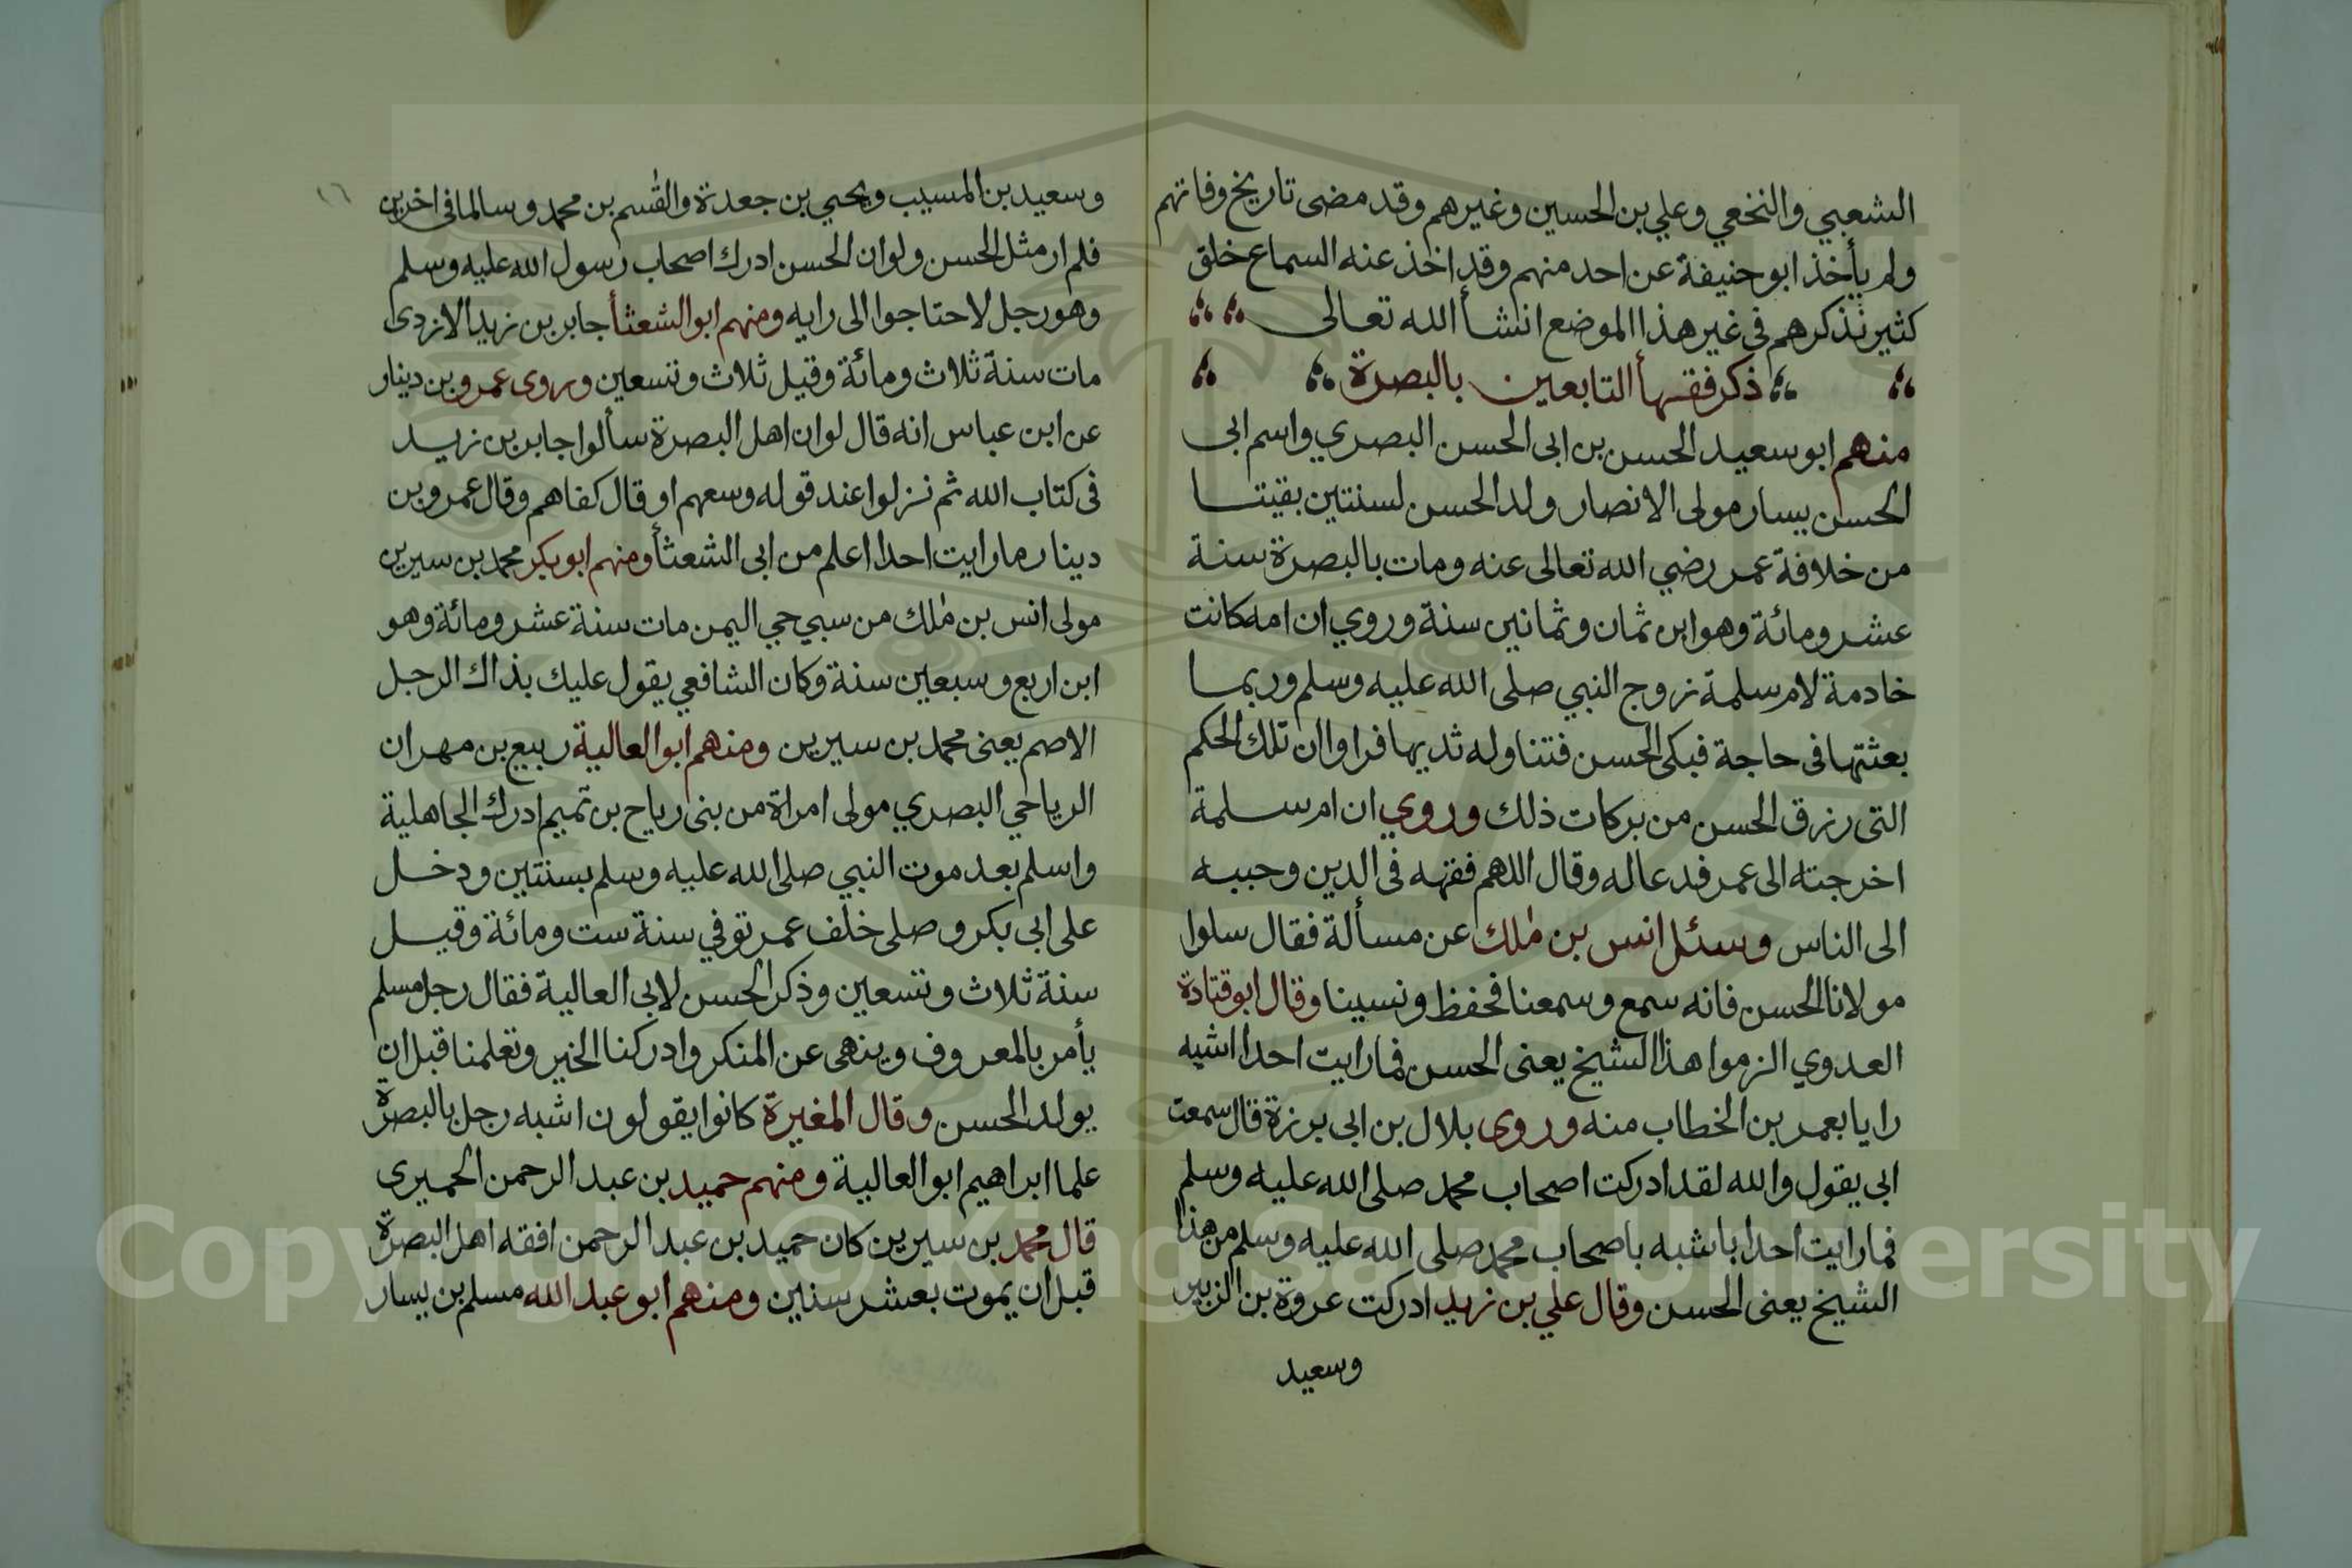 الشعبي والنخعي وعلي بن الحسين وغيرهم وقد مضى تاريخ وفاتهم
ولم يأخذ ابو حنيفة عن احد منهم وقد اخذ عنه السماع خلق
كثير نذكرهم في غير هذا الموضع انشأ الله تعالى
ذكر فقهأ التابعين بالبصرة
منهم ابو سعيد الحسن بن ابى الحسن البصري واسم ابى
الحسن يسار مولى الانصار ولد الحسن لسنتين بقيتا
من خلافة عمر رضي الله تعالى عنه ومات بالبصرة سنة
عشر ومائة وهو ابن ثمان وثمانين سنة وروي ان امه كانت
خادمة لام سلمة زوج النبي صلى الله عليه وسلم وربما
بعثتها فى حاجة فبكى الحسن فتناوله ثديها فراوا ان تلك الحكم
التى رزق الحسن من بركات ذلك وروي ان ام سلمة
اخرجته الى عمر فدعا له وقال اللهم فقهه فى الدين وحببه
الى الناس وسئل انس بن ملك عن مسألة فقال سلوا
مولانا الحسن فانه سمع وسمعنا فحفظ ونسينا وقال ابو قتادة
العدوي الزموا هذا الشيخ يعنى الحسن فما رايت احدا اشبه
رايا بعمر بن الخطاب منه وروى بلال بن ابى برزة قال سمعت
ابى يقول والله لقد ادركت اصحاب محمد صلى الله عليه وسلم
فما رايت احدا باشبه باصحاب محمد صلى الله عليه وسلم من هذا
الشيخ يعنى الحسن وقال علي بن زيد ادركت عروة بن الزبير
وسعيد
١٦
وسعيد بن المسيب ويحيي بن جعدة والقسم بن محمد وسالما فى اخرين
فلم ار مثل الحسن ولو ان الحسن ادرك اصحاب رسول الله عليه وسلم
وهو رجل لاحتاجوا الى رايه ومنهم ابو الشعثأ جابر بن زيد الازدى
مات سنة ثلاث ومائة وقيل ثلاث وتسعين وروى عمرو بن دينار
عن ابن عباس انه قال لو ان اهل البصرة سألوا جابر بن زيد
فى كتاب الله ثم نزلوا عند قوله وسعهم او قال كفاهم وقال عمرو بن
دينار ما رايت احدا اعلم من ابى الشعثأ ومنهم ابو بكر محمد بن سيرين
مولى انس بن ملك من سبي حي اليمن مات سنة عشر ومائة وهو
ابن اربع وسبعين سنة وكان الشافعي يقول عليك بذاك الرجل
الاصم يعنى محمد بن سيرين ومنهم ابو العالية ربيع بن مهران
الرياحي البصري مولى امراة من بنى رياح بن تميم ادرك الجاهلية
واسلم بعد موت النبي صلى الله عليه وسلم بسنتين ودخل
على ابى بكر وصلى خلف عمر توفي سنة ست ومائة وقيل
سنة ثلاث وتسعين وذكر الحسن لابى العالية فقال رجل مسلم
يأمر بالمعروف وينهى عن المنكر وادركنا الخير وتعلمنا قبل ان
يولد الحسن وقال المغيرة كانوا يقولون اشبه رجل بالبصرة
علما ابراهيم ابو العالية ومنهم حميد بن عبد الرحمن الحميرى
قال محمد بن سيرين كان حميد بن عبد الرحمن افقه اهل البصرة
قبل ان يموت بعشر سنين ومنهم ابو عبد الله مسلم بن يسار
Copyright © King Saud University